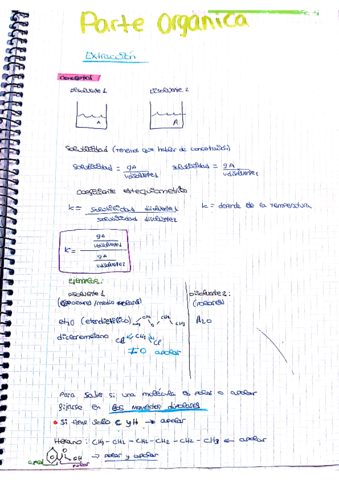 Parte Organica
Extracción
Conceptos
disolvente 1 disolvente 2
A A
Solubilidad (tenemos que hablar de concentración)
Solubilidad = gA / Vdisolvente1 Solubilidad = gA / Vdisolvente2
Coeficiente estequiometrico
K = Solubilidades disolvente1 / Solubilidades disolvente2 K = depende de la temperatura
K = gA / Vdisolvente1 / gA / Vdisolvente2
Ejemplos:
disolvente 1 disolvente 2:
Et2O (eterdietilico) CH2 O CH2 CH3 H2O
diclorometano Cl CH2 Cl
apolar
Para saber si una molécula es polar o apolar
fijarse en los momentos dipolares
Si tiene solo C y H → apolar
Hexano: CH3 - CH2 - CH2 - CH2 - CH2 - CH3 ← apolar
OH → polar y apolar
apolar polar